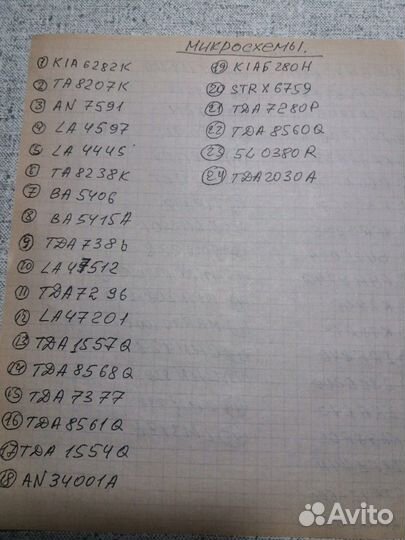 МИКРОСХЕМЫ.
① KIA6282K
② TA8207K
③ AN 7591
④ LA 4597
⑤ LA 4445
⑥ TA8238K
⑦ BA5406
⑧ BA5415A
⑨ TDA7386
⑩ LA47512
⑪ TDA7296
⑫ LA47201
⑬ TDA1557Q
⑭ TDA8568Q
⑮ TDA7377
⑯ TDA8561Q
⑰ TDA 1554Q
⑱ AN34001A
⑲ KIA6280H
⑳ STRX6759
㉑ TDA7280P
㉒ TDA8560Q
㉓ 5L0380R
㉔ TDA2030A
Avito